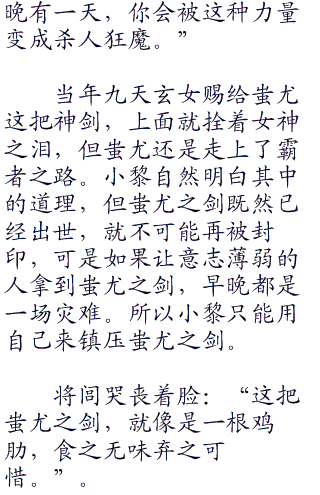 晚有一天，你会被这种力量
变成杀人狂魔。”
当年九天玄女赐给蚩尤
这把神剑，上面就拴着女神
之泪，但蚩尤还是走上了霸
者之路。小黎自然明白其中
的道理，但蚩尤之剑既然已
经出世，就不可能再被封
印，可是如果让意志薄弱的
人拿到蚩尤之剑，早晚都是
一场灾难。所以小黎只能用
自己来镇压蚩尤之剑。
将闾哭丧着脸：“这把
蚩尤之剑，就像是一根鸡
肋，食之无味弃之可
惜。”。